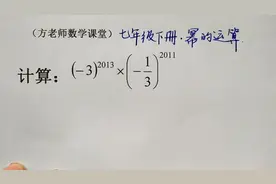 （方老师数学课堂）七年级下册·幂的运算
计算：(-3)^2013×(-1/3)^2011